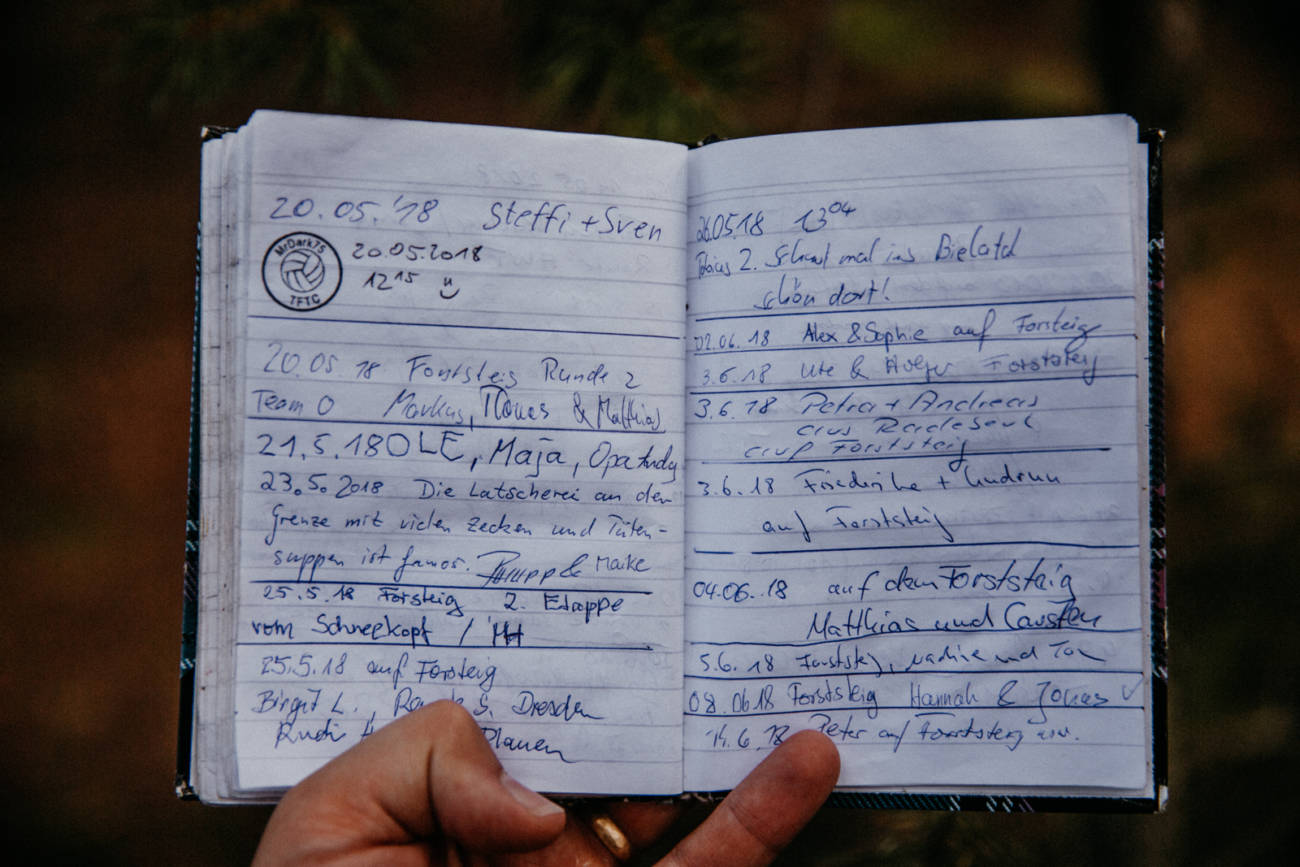 20.05.'18 Steffi + Sven
MrDark75
TFTC
20.05.2018
12 15
20.05.18 Forststeig Runde 2
Team O Markus, & Matthias
21.5.18 OLE, Maja, Opa Andy
23.5.2018 Die Latscherei an der
Grenze mit vielen Zecken und Tüten-
suppen ist famos. & Maike
25.5.18 Forsteig 2. Etappe
vom Schneekopf /
25.5.18 auf Forsteig
Birgit L., S. Dresden
Rudi Plauen
26.05.18 13 04
2. Schaut mal ins Bielatal
schön dort!
02.06.18 Alex & Sophie auf Forsteig
3.6.18 Ute & Holger Forststeig
3.6.18 Petra + Andreas
aus Radebeul
auf Forststeig
3.6.18 Friederike + Gudrun
auf Forststeig
04.06.18 auf dem Forststeig
Matthias und Carsten
5.6.18 Forststeig, Nadine und Tom
08.0618 Forststeig Hannah & Jonas
14.6.18 Peter auf Forststeig